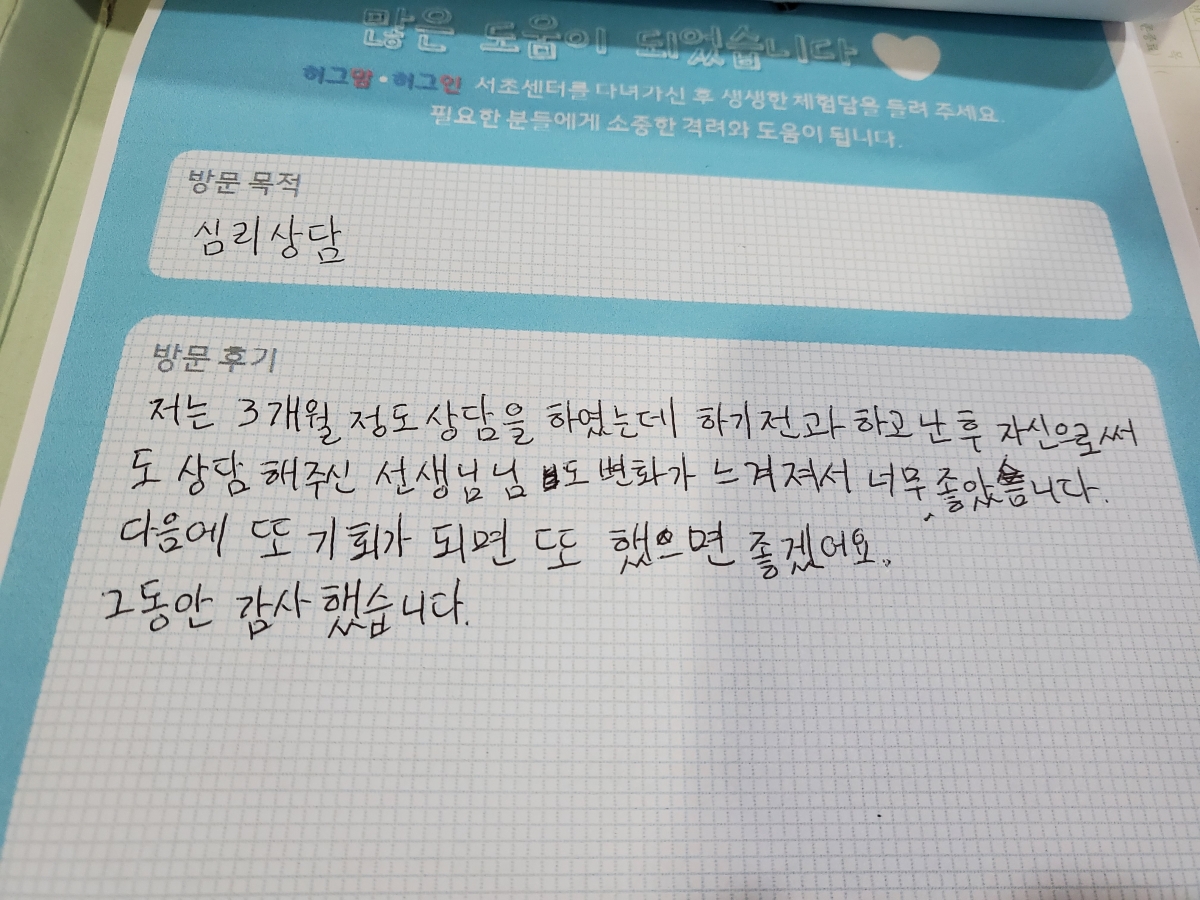 많은 도움이 되었습니다
허그맘·허그인 서초센터를 다녀가신 후 생생한 체험담을 들려 주세요.
필요한 분들에게 소중한 격려와 도움이 됩니다.
방문 목적
심리상담
방문 후기
저는 3개월 정도 상담을 하였는데 하기전과 하고 난 후 자신으로써
도 상담 해주신 선생님 님 도 변화가 느겨져서 너무 좋았습니다.
다음에 또 기회가 되면 또 했으면 좋겠어요.
그동안 감사했습니다.